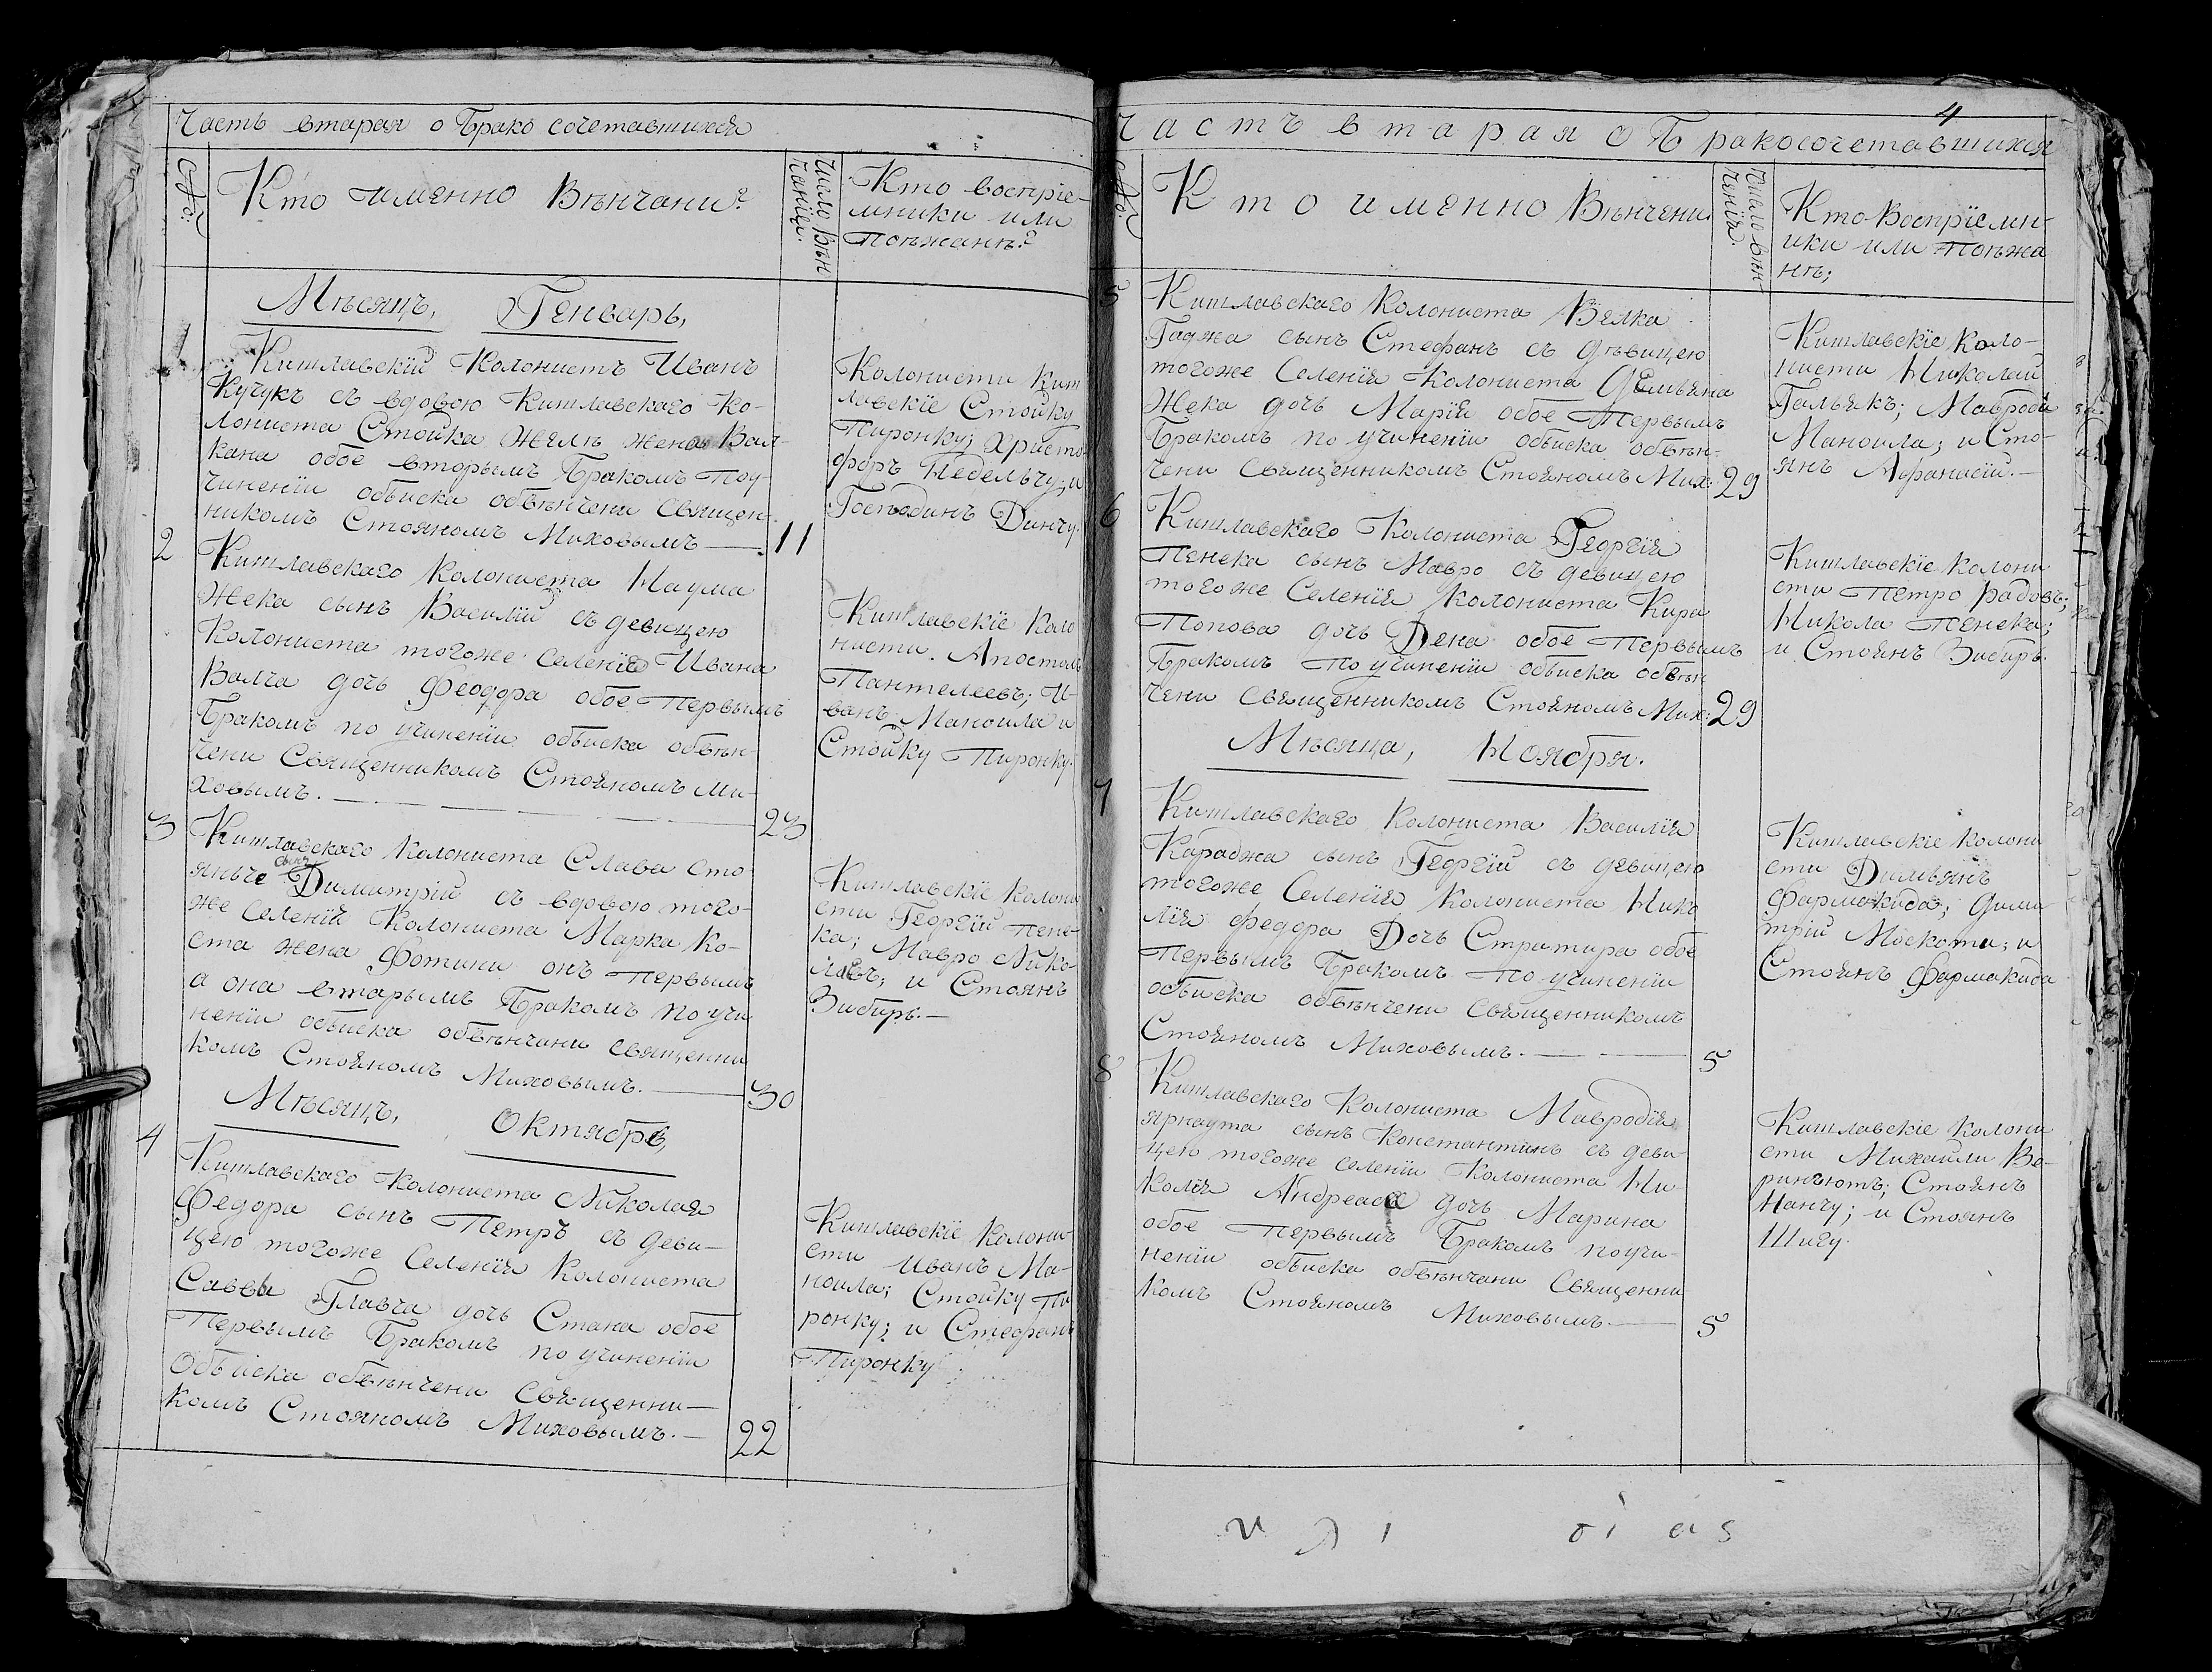 Часть втарая о Брако сочетавшихся
№:
Кто имянно Вѣнчани?
Число Вѣн
чаніи.
Кто воспріе-
мники или
Поѣжанѣ?
Мѣсяцъ, Генварь,
1
Кишлавскій Колонистъ Иванъ
Кучукъ съ вдовою Кишлавскаго Ко-
лониста Стойка Желѣ жена Вол-
кана обое вторымъ Бракомъ поу-
чиненіи обыска обвѣнчени Священ-
никомъ Стояномъ Миховымъ — 11
Колонисти Киш
лавскіе Стойку
Пиронку; Христо
форъ Недельчу; и
Господинъ Динчу.
2
Кишлавскаго Колониста Наума
Жека сынъ Василій съ девицею
Колониста тогоже селенія Ивана
Волча дочь Феодора обое Первымъ
Бракомъ по учиненіи обыска обвѣн-
чени Священникомъ Стояномъ Ми-
ховымъ. — 23
Кишлавскіе Коло
нисти Апостолъ
Пантелеевъ; И-
ванъ Маноила и
Стойку Пиронку.
3
Кишлавскаго Колониста Слава Сто
янъче сынъ Димитрій съ вдовою того-
же селенія Колониста Марка Ко-
ста жена Фотини онъ первымъ
а она втарымъ Бракомъ по учи
неніи обыска обвѣнчани священни
комъ Стояномъ Миховымъ. — 30
Кишлавскіе Колони
сти Георгій Пене-
ка; Мавро Нико-
лаевъ; и Стоянъ
Зибиръ.—
Мѣсяцъ, Октябрь,
4
Кишлавскаго Колониста Николая
Федора сынъ Петръ съ деви-
цею тогоже Селенія Колониста
Саввы Главча дочь Стана обое
Первымъ Бракомъ по учиненіи
Обыска обвѣнчени Священни—
комъ Стояномъ Миховымъ.— 22
Кишлавскіе Колони-
сти Иванъ Ма-
ноила; Стойку Пи
ронку; и Стефанъ
Пиронку
4
Часть втарая о Бракосочетавшихся
№
Кто имянно Вѣнчени
Число вѣн
ченія.
Кто Воспріемн-
ики или Поѣжа
нѣ;
5
Кишлавскаго Колониста Вялка
Гаджа сынъ Стефанъ съ дѣвицею
тогоже Селенія Колониста Демьяна
Жека дочь Марія обое Первымъ
Бракомъ по учиненіи обыска обвѣн-
чени Священникомъ Стояномъ Мих: 29
Кишлавскіе Коло-
нисти Николай
Гальякъ; Мавроди
Маноила; и Сто-
янъ Афанасій.—
6
Кишлавскаго Колониста Георгія
Пенека сынъ Мавро съ девицею
тогоже Селенія Колониста Кира
Попова дочь Дена обое Первымъ
Бракомъ по учиненіи обыска обвѣн
чени священникомъ Стояномъ Мих: 29
Кишлавскіе Колони
сти Петро Радовъ;
Никола Пенека;
и Стоянъ Зибиръ.
Мѣсяца, Ноября.
7
Кишлавскаго Колониста Василія
Караджа сынъ Георгій съ девицею
тогоже Селенія Колониста Нико
лія Федора Дочь Стратира обое
Первымъ Бракомъ по учиненіи
обыска обвѣнчени Священникомъ
Стояномъ Миховымъ. — 5
Кишлавскіе Колони
сти Димьянъ
Фармакида; Дими
трій Москоти; и
Стоянъ Фармакида
8
Кишлавскаго Колониста Мавродія
ярнаута сынъ Константинъ съ деви-
цею тогоже селенія Колониста Ни-
колія Андреаса дочь Марина
обое первымъ Бракомъ по учи-
неніи обыска обвѣнчани Священни
комъ Стояномъ Миховымъ.— 5
Кишлавскіе Колони
сти Михайли Ве-
ринъютъ; Стоянъ
Нанчу; и Стоянъ
Шигу.